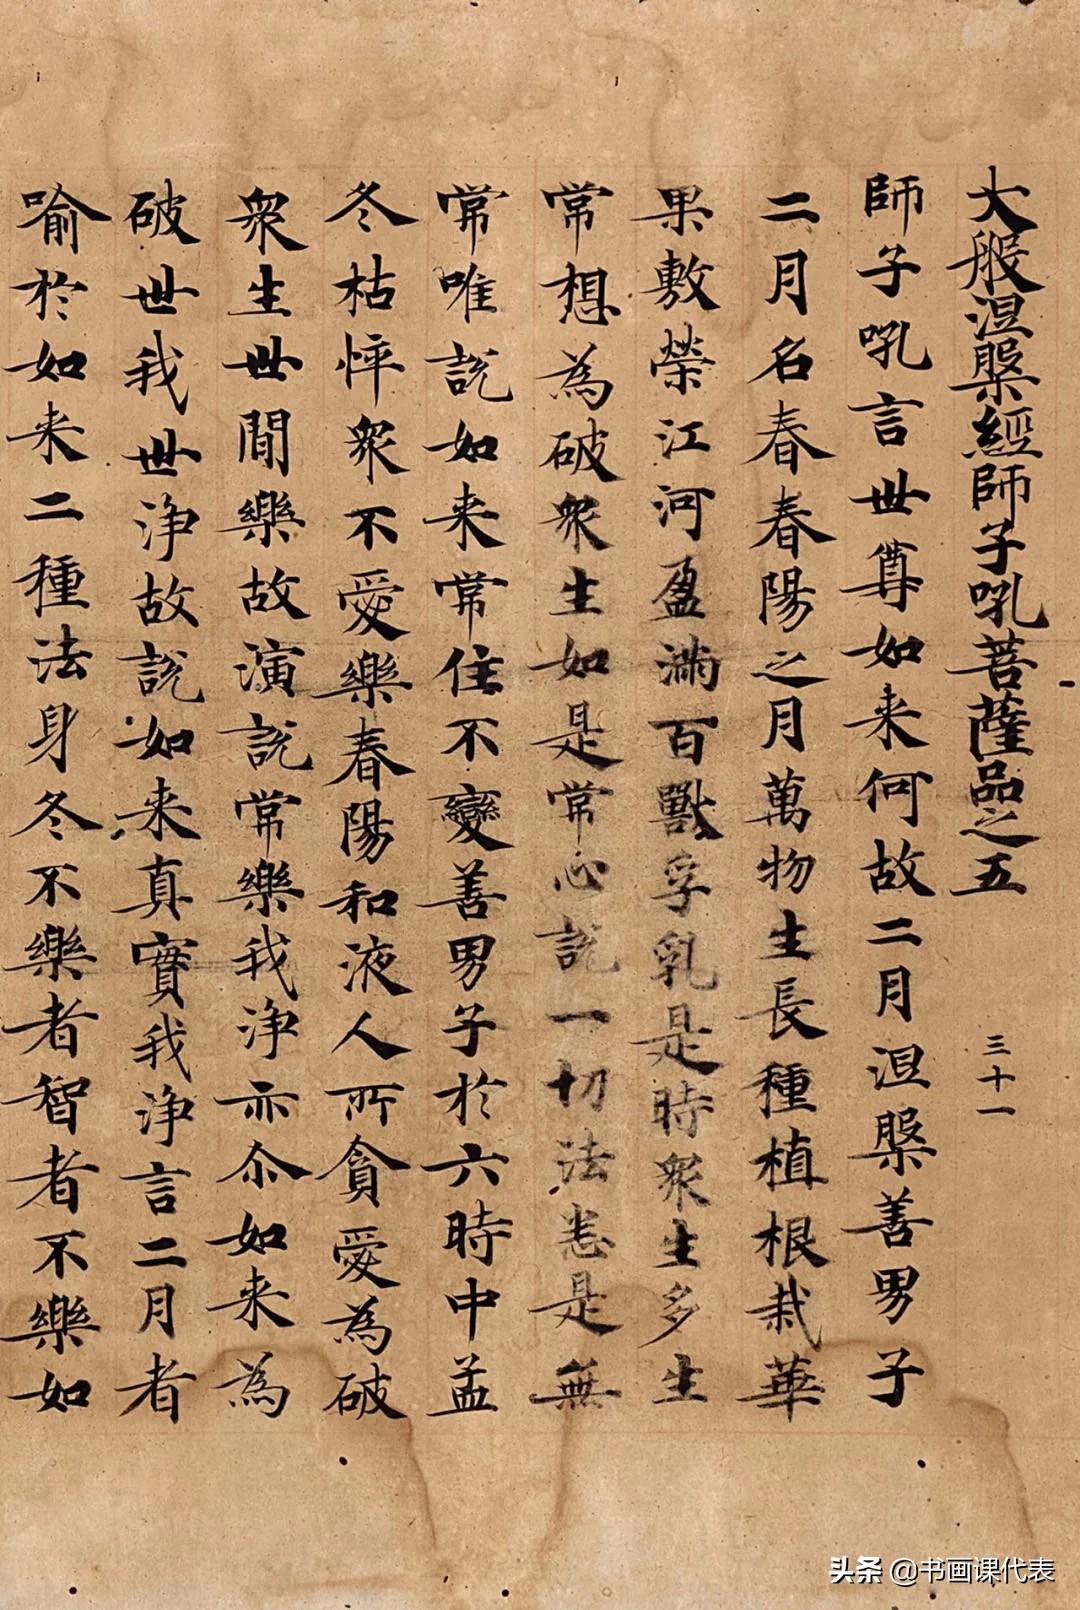 大般涅槃經師子吼菩薩品之五 三十一
師子吼言世尊如来何故二月涅槃善男子
二月名春春陽之月萬物生長種植根栽華
果敷榮江河盈滿百獸孚乳是時衆生多生
常想為破衆生如是常心說一切法悉是無
常唯說如来常住不變善男子於六時中孟
冬枯悴衆不愛樂春陽和液人所貪愛為破
衆生世間樂故演說常樂我淨亦尒如来為
破世我世淨故說如来真實我淨言二月者
喻於如来二種法身冬不樂者智者不樂如
头条 @书画课代表